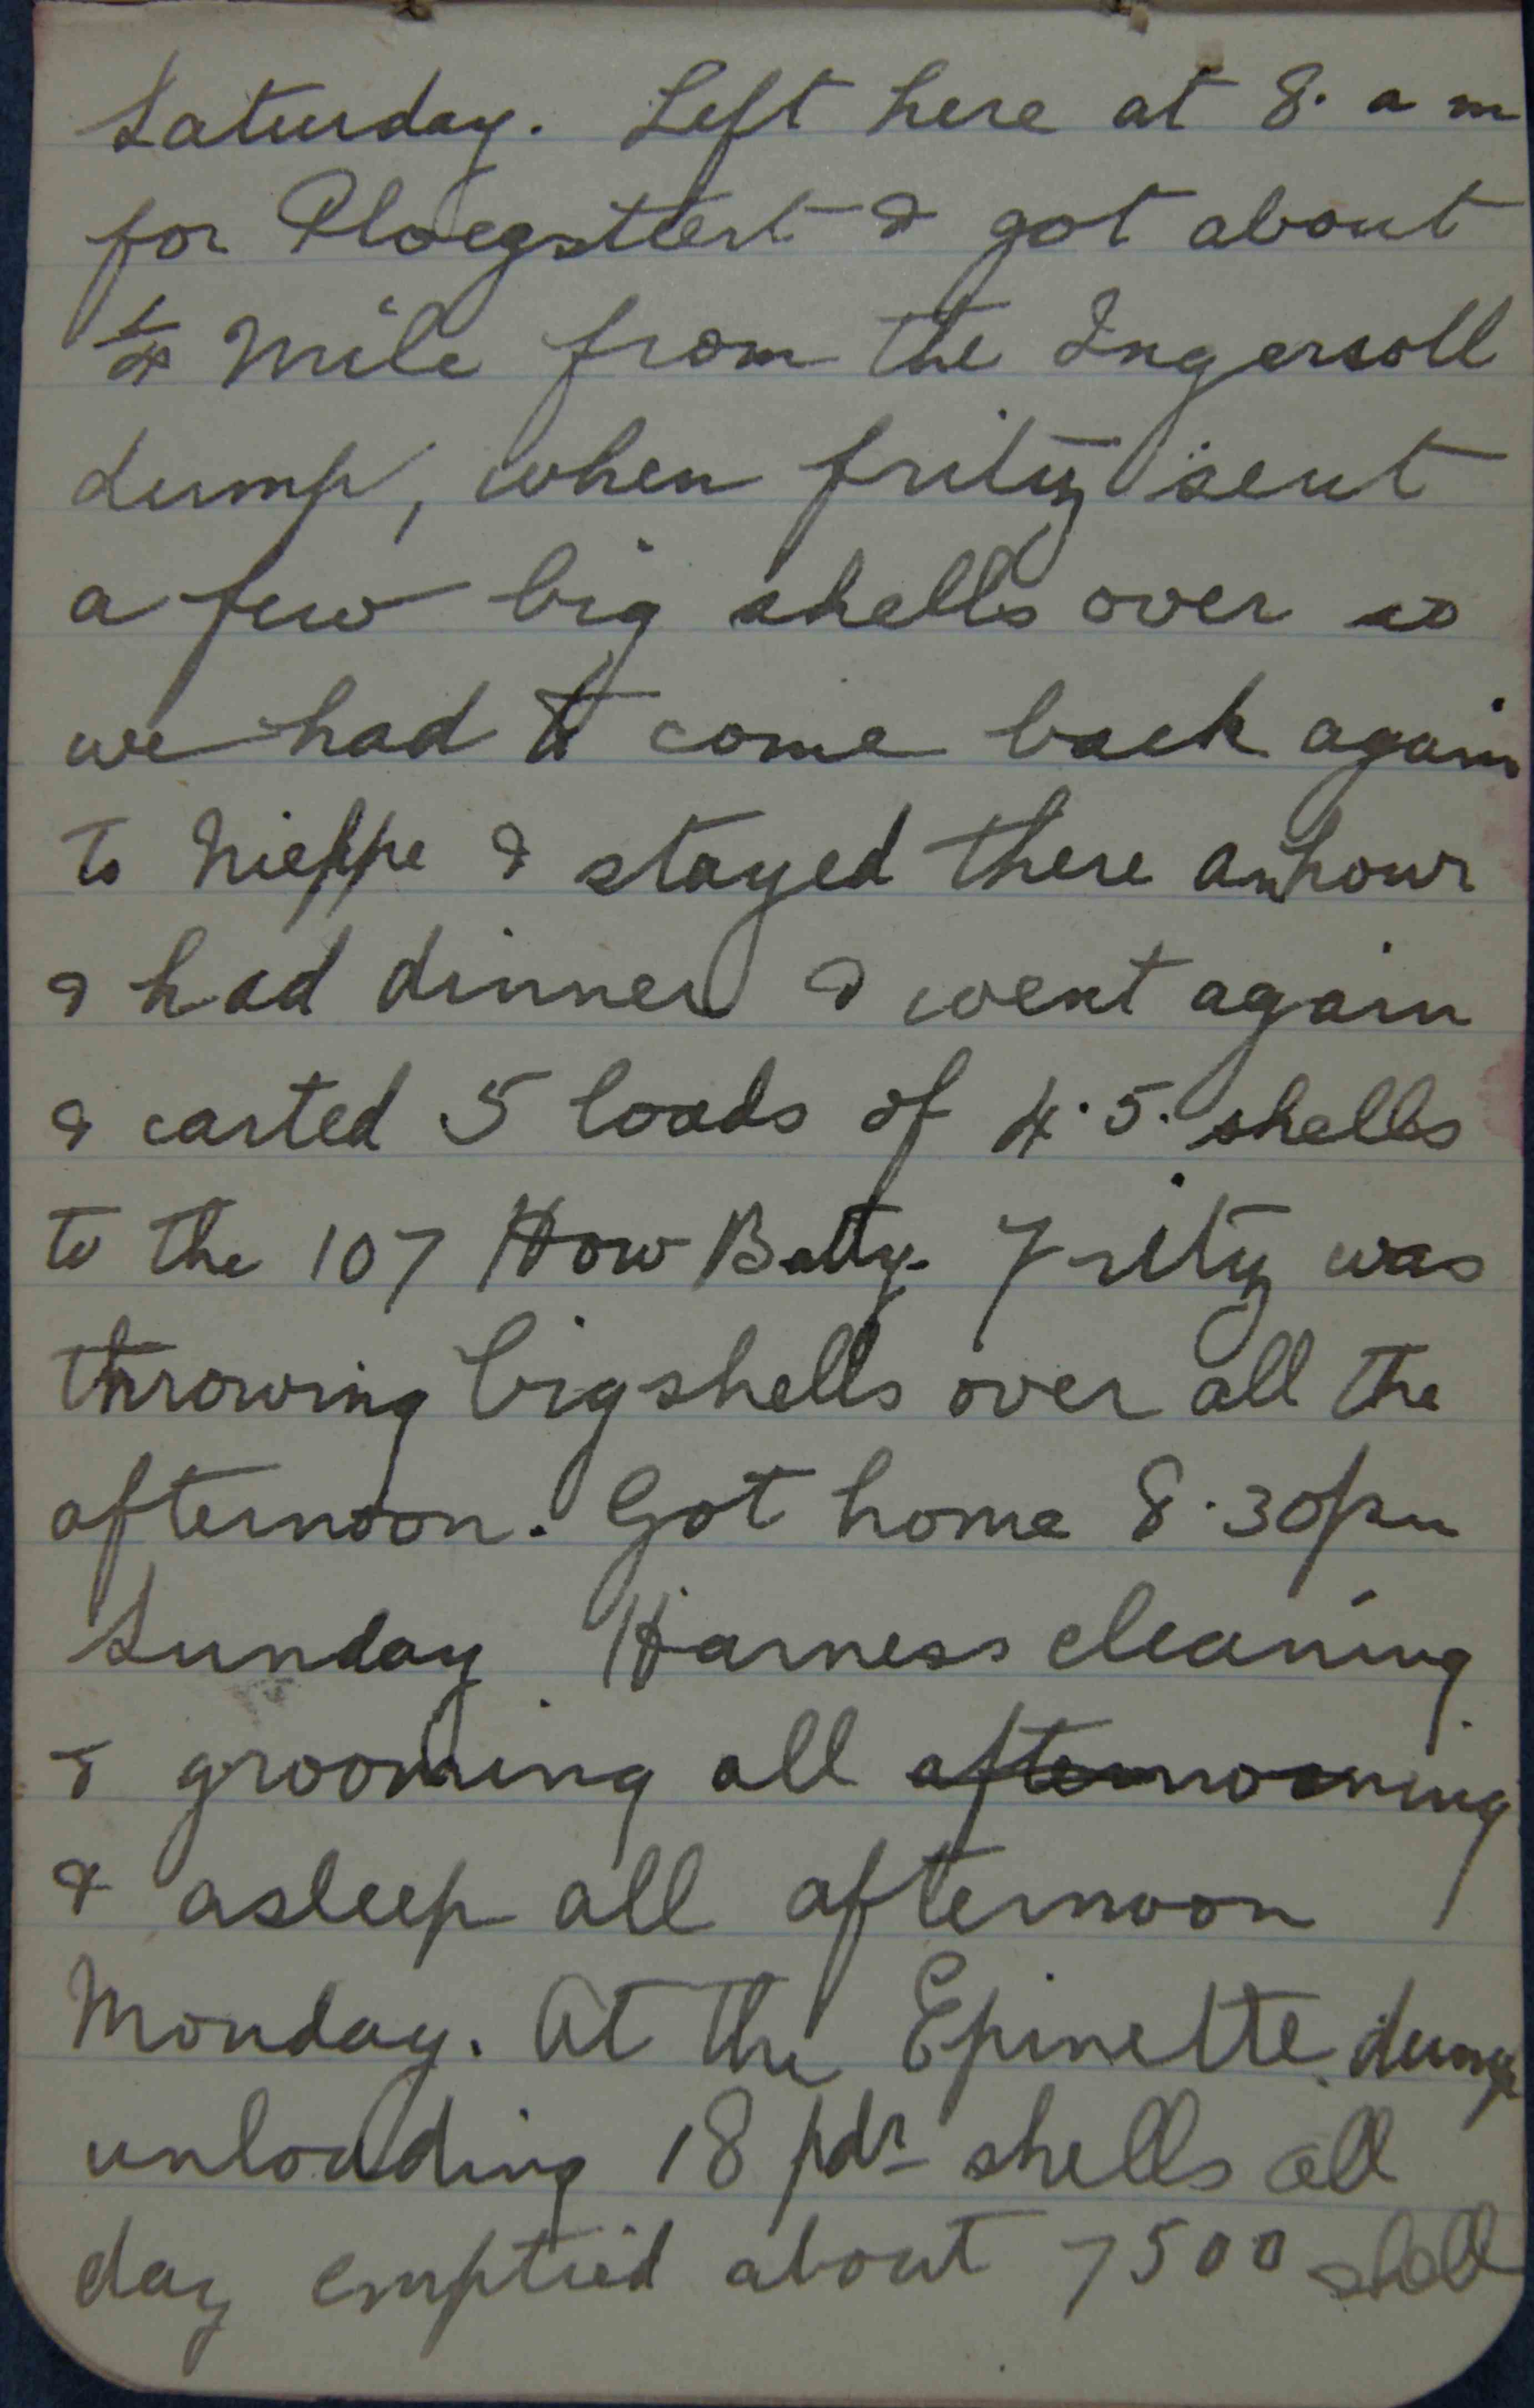 Saturday. Left here at 8. a m
for Ploegsteert & got about
¼ mile from the Ingersoll
dump, when fritz sent
a few big shells over so
we had to come back again
to Nieppe & stayed there an hour
& had dinner & went again
& carted 5 loads of 4.5. shells
to the 107 How Batty. Fritz was
throwing big shells over all the
afternoon. Got home 8.30pm
Sunday Harness cleaning
& grooming all morning
& asleep all afternoon
Monday. At the Epinette dump
unloading 18 pdr shells all
day emptied about 7500 shell